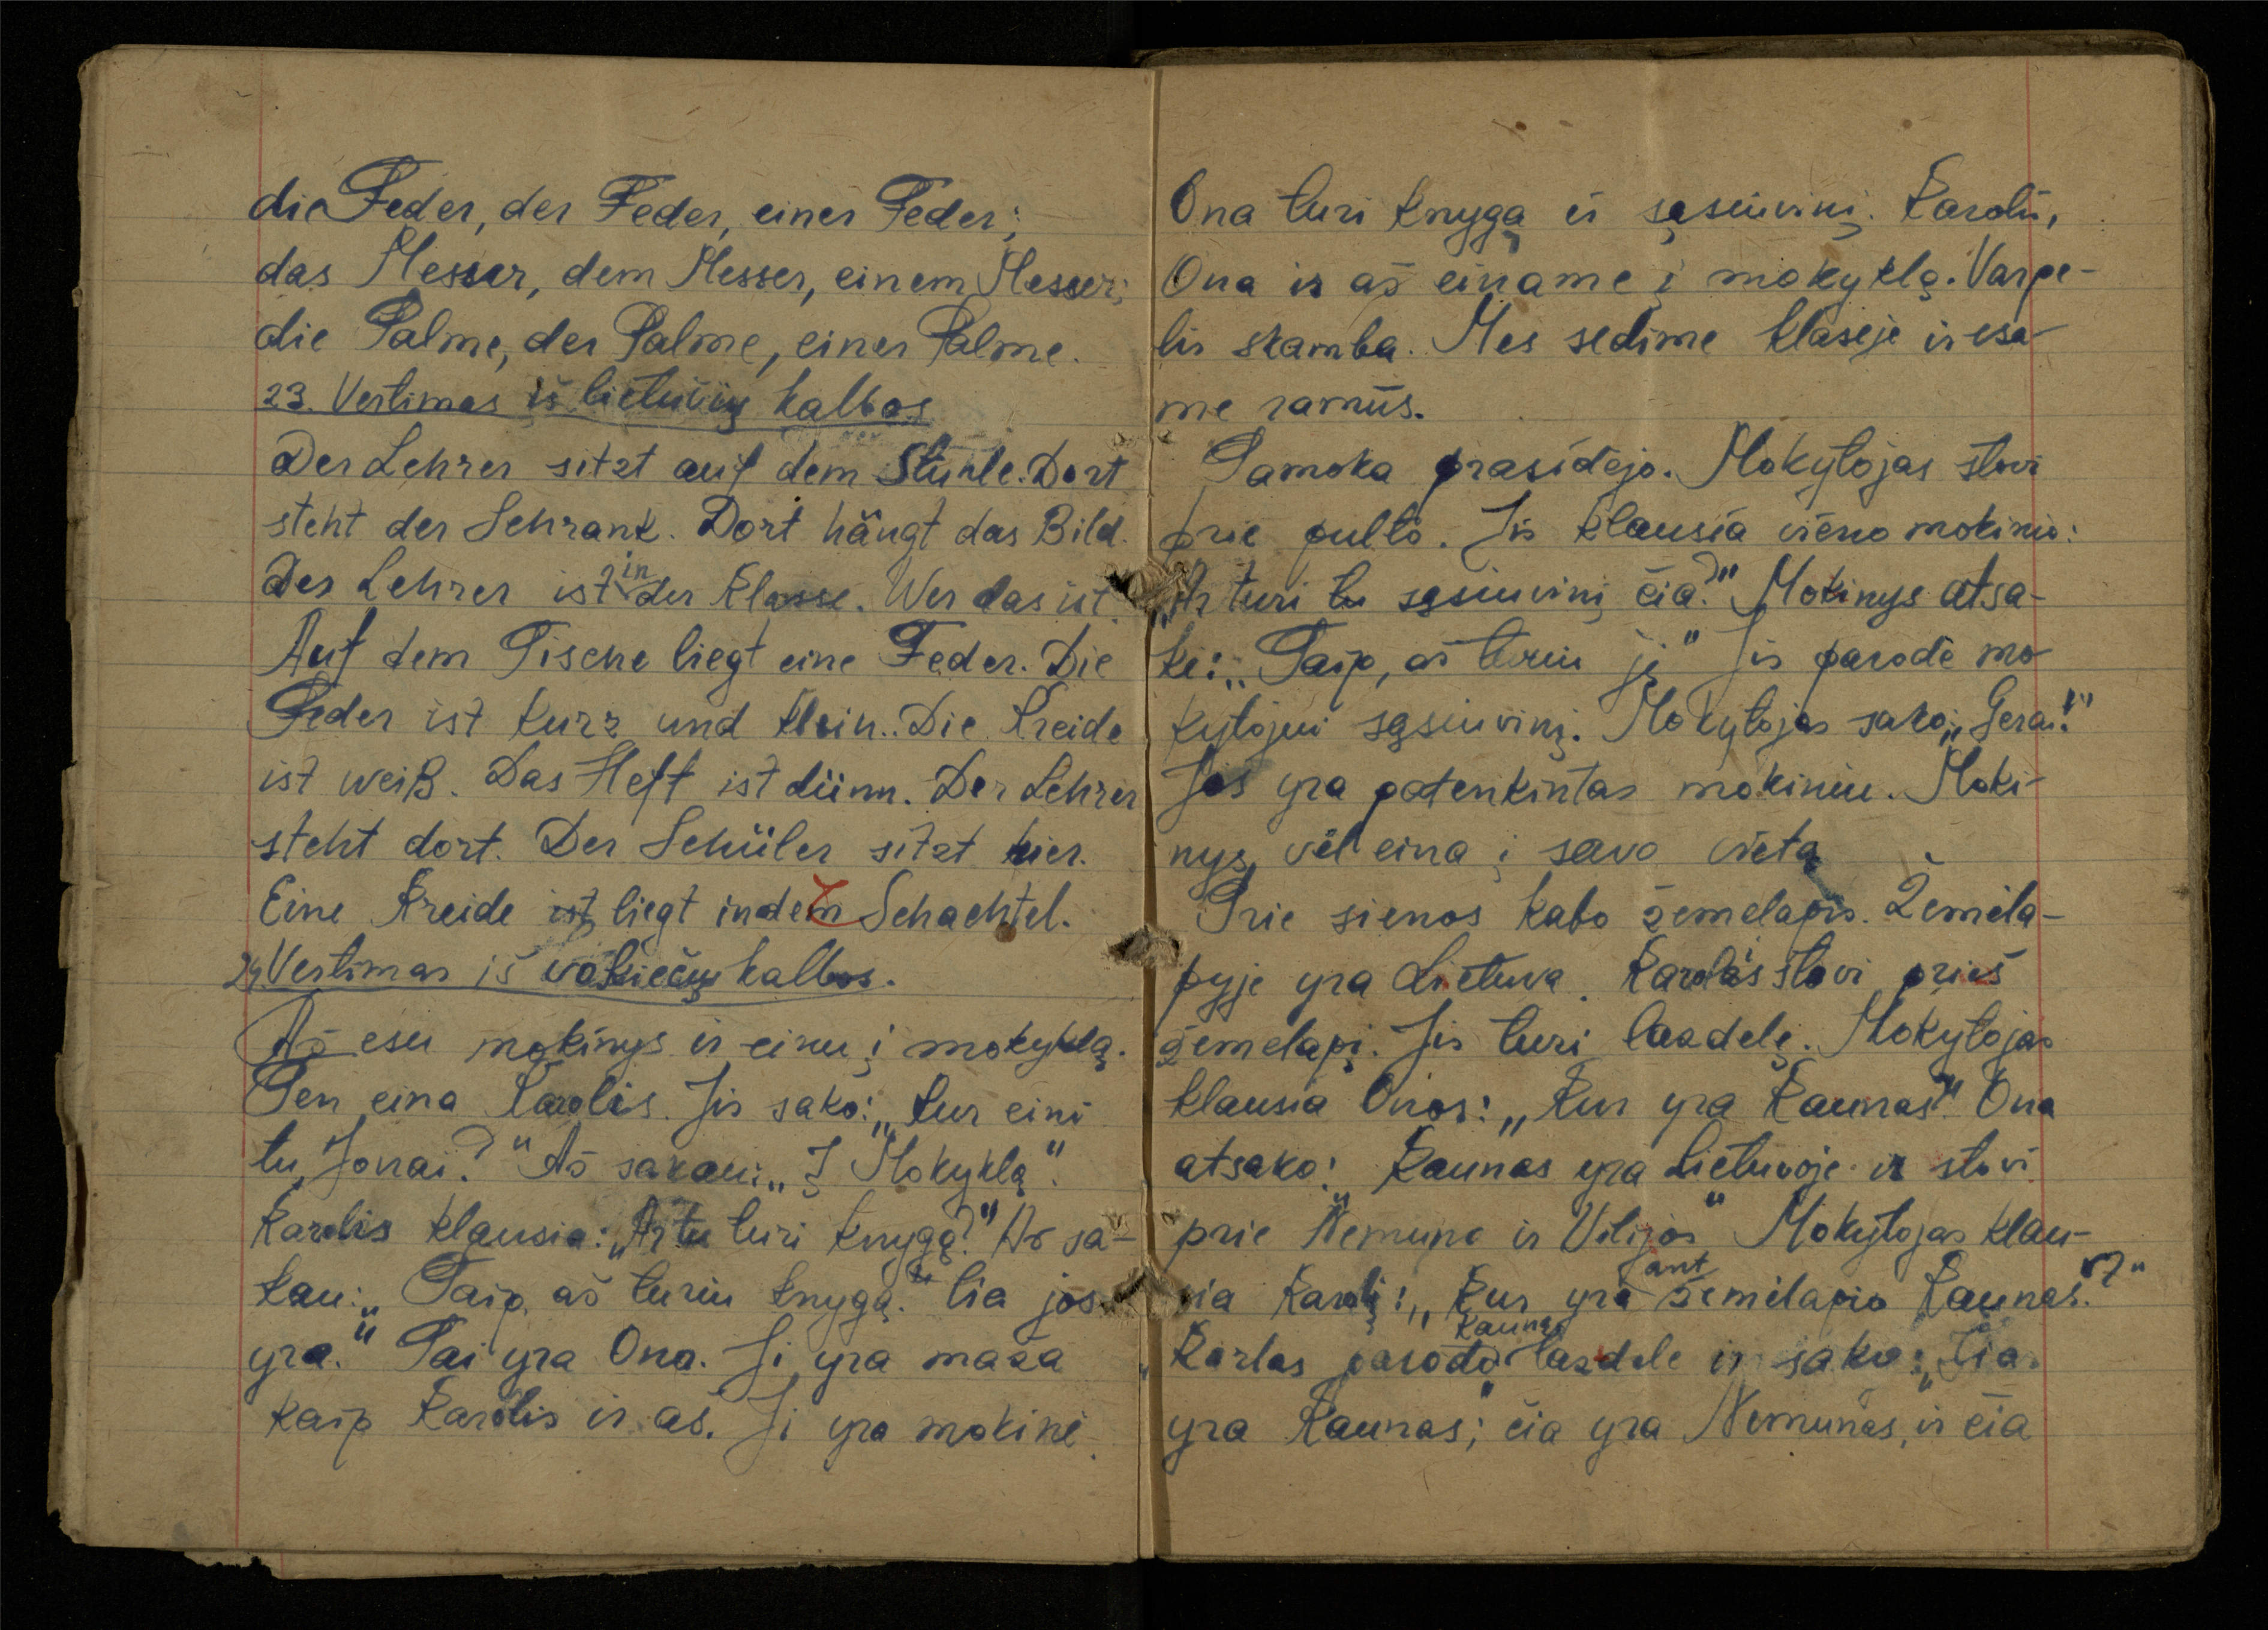 die Feder, der Feder, einer Feder;
das Messer, dem Messer, einem Messer;
die Palme, der Palme, einer Palme.
23. Vertimas iš lietuvių kalbos
Der Lehrer sitzt auf dem Stuhle. Dort
steht der Schrank. Dort hängt das Bild.
Der Lehrer ist in der Klasse. Wer das ist.
Auf dem Tische liegt eine Feder. Die
Feder ist kurz und klein. Die Kreide
ist weiß. Das Heft ist dünn. Der Lehrer
steht dort. Der Schüler sitzt hier.
Eine Kreide ist liegt in dem Schachtel.
24 Vertimas iš vokiečių kalbos.
Aš esu mokinys ir einu į mokyklą.
Ten eina Karolis. Jis sako: „Kur eini
tu, Jonai?" Aš sakau: „Į Mokyklą".
Karolis klausia: „Ar tu turi knygą?" Aš sa-
kau: „Taip, aš turiu knygą." Čia jos
yra." Tai yra Ona. Ji yra maža
kaip Karolis ir aš. Ji yra mokinė.
Ona turi knygą ir sąsiuvinį. Karolis,
Ona ir aš einame į mokyklą. Varpe-
lis skamba. Mes sedime klasėje ir esa-
me ramūs.
Pamoka prasidėjo. Mokytojas stovi
prie pulto. Jis klausia vieno mokinio:
„Ar turi tu sąsiuvinį čia?" Mokinys atsa-
kė: „Taip, aš turiu jį" Jis parodė mo-
kytojui sąsiuvinį. Mokytojas sako: „Gerai!"
Jos yra patenkintas mokiniu. Moki-
nys vėl eina į savo vietą
Prie sienos kabo žemelapis. Žemėla-
pyje yra Lietuva. Karolis stovi prieš
žemelapį. Jis turi lazdelę. Mokytojas
klausia Onos: „Kur yra Kaunas?" Ona
atsako: „Kaunas yra Lietuvoje ir stovi
prie Nemuno ir Vilijos" Mokytojas klau-
sia Karolį: „Kur yra ant žemėlapio Kaunas?"
Karlas parodo Kauną lazdele ir sako: „Čia
yra Kaunas; čia yra Nemunas, ir čia